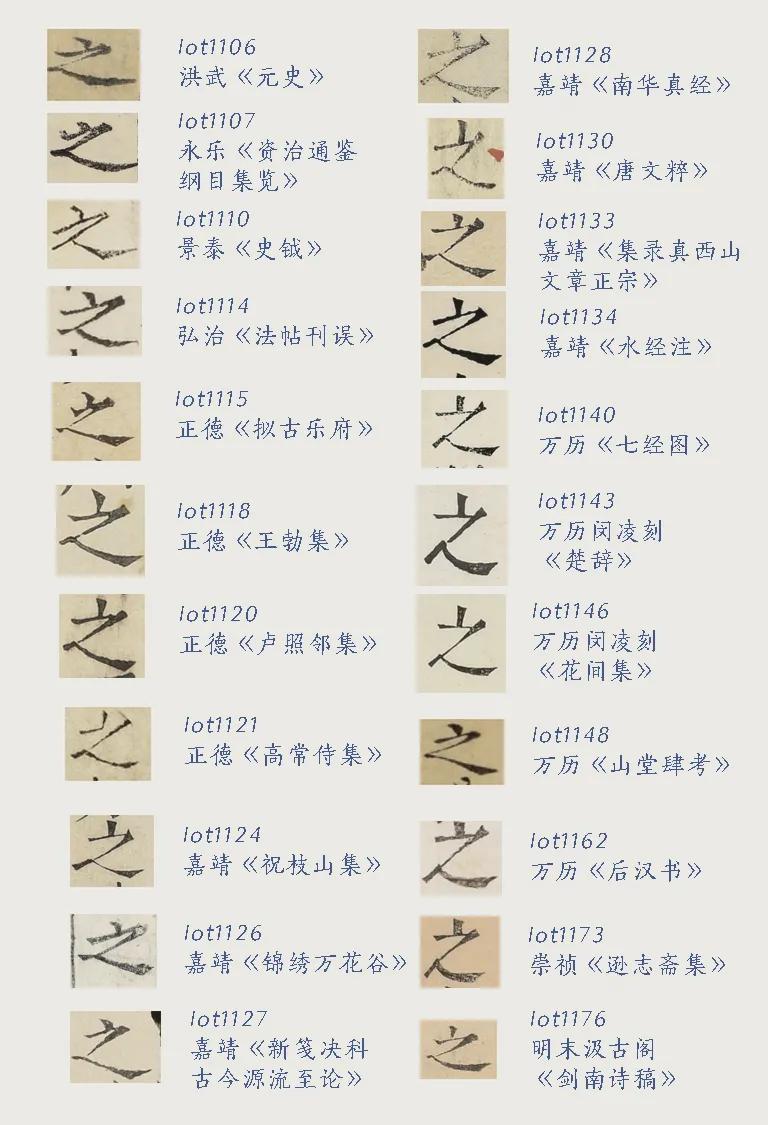 之
lot1106
洪武《元史》
之
lot1107
永乐《资治通鉴
纲目集览》
之
lot1110
景泰《史钺》
之
lot1114
弘治《法帖刊误》
之
lot1115
正德《拟古乐府》
之
lot1118
正德《王勃集》
之
lot1120
正德《卢照邻集》
之
lot1121
正德《高常侍集》
之
lot1124
嘉靖《祝枝山集》
之
lot1126
嘉靖《锦绣万花谷》
之
lot1127
嘉靖《新笺决科
古今源流至论》
之
lot1128
嘉靖《南华真经》
之
lot1130
嘉靖《唐文粹》
之
lot1133
嘉靖《集录真西山
文章正宗》
之
lot1134
嘉靖《水经注》
之
lot1140
万历《七经图》
之
lot1143
万历闵凌刻
《楚辞》
之
lot1146
万历闵凌刻
《花间集》
之
lot1148
万历《山堂肆考》
之
lot1162
万历《后汉书》
之
lot1173
崇祯《逊志斋集》
之
lot1176
明末汲古阁
《剑南诗稿》